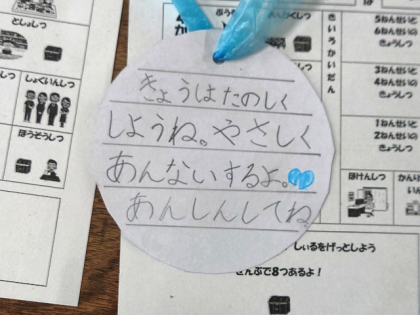 としょしつ
しょくいんしつ
ほうそうしつ
きょうはたのしく
しようね。やさしく
あんないするよ。
あんしんしてね
きいろかいだん
5ねんせいと
6ねんせいの
きょうしつ
3ねんせいと
4ねんせいの
きょうしつ
1ねんせいと
2ねんせいの
きょうしつ
ほけんしつ
しぃるをげっとしよう
ぜんぶで8つあるよ！